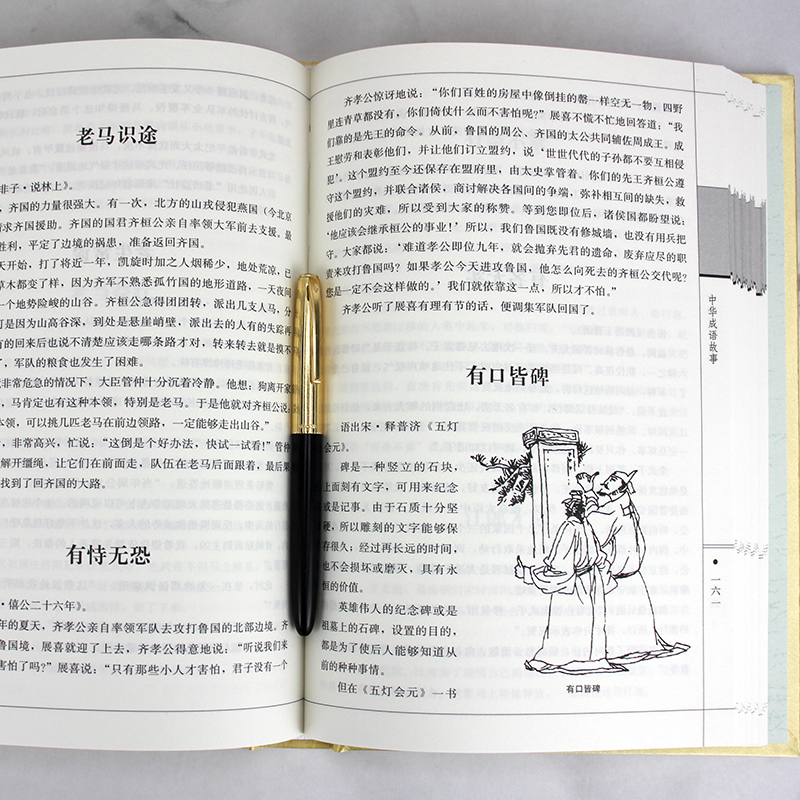 老马识途
非子·说林上》。
，齐国的力量很强大。有一次，北方的山戎侵犯燕国（今北京
请求齐国援助。齐国的国君齐桓公亲自率领大军前去支援。最
胜利，平定了边境的祸患，准备返回齐国。
天开始，打了将近一年，凯旋时加之人烟稀少，地处荒凉，已
草木都变了样，因为齐军不熟悉孤竹国的地形道路，一天夜间
一个地势险峻的山谷。齐桓公急得团团转，派出几支人马，分
可是因为山高谷深，到处是悬崖峭壁，派出去的人有的失踪再
有的回来后也说不清楚应该走哪条路才对，转来转去就是摸不
了，军队的粮食也发生了困难。
非常危急的情况下，大臣管仲十分沉着冷静。他想：狗离开家
，马肯定也有这种本领，特别是老马。于是他就对齐桓公说：
本领，可以挑几匹老马在前边领路，一定能够走出山谷。”
，非常高兴，忙说：“这倒是个好办法，快试一试看！”管仲
解开缰绳，让它们在前面走，队伍在老马后面跟着，最后果
找到了回齐国的大路。
有恃无恐
·僖公二十六年》。
年的夏天，齐孝公亲自率领军队去攻打鲁国的北部边境。齐
鲁国境，展喜就迎了上去，齐孝公得意地说：“听说我们来
害怕了吗？”展喜说：“只有那些小人才害怕，君子没有一个
齐孝公惊讶地说：“你们百姓的房屋中像倒挂的罄一样空无一物，四野
里连青草都没有，你们倚仗什么而不害怕呢？”展喜不慌不忙地回答道：“我
们靠的是先王的命令。从前，鲁国的周公、齐国的太公共同辅佐周成王。成
王慰劳和表彰他们，并让他们订立盟约，说‘世世代代的子孙都不要互相侵
犯’。这个盟约至今还保存在盟府里，由太史掌管着。你们的先王齐桓公遵
守这个盟约，并联合诸侯，商讨解决各国间的争端，弥补相互间的缺失，救
援他们的灾难，所以受到大家的称赞。等到您即位后，诸侯国都盼望说：
‘他应该会继承桓公的事业！’所以，我们鲁国既没有修城墙，也没有用兵把
守。大家都说：‘难道孝公即位九年，就会抛弃先君的遗命，废弃应尽的职
责来攻打鲁国吗？如果孝公今天进攻鲁国，他怎么向死去的齐桓公交代呢？
您是一定不会这样做的。’我们就依靠这一点，所以才不怕。”
齐孝公听了展喜有理有节的话，便调集军队回国了。
有口皆碑
语出宋·释普济《五灯
会元》。
碑是一种竖立的石块，
上面刻有文字，可用来纪念
或是记事。由于石质十分坚
硬，所以雕刻的文字能够保
存很久；经过再长远的时间，
也不会损坏或磨灭，具有永
恒的价值。
英雄伟人的纪念碑或是
祖墓上的石碑，设置的目的，
都是为了使后人能够知道从
前的种种事情。
但在《五灯会元》一书
有口皆碑
中华成语故事
·一六一